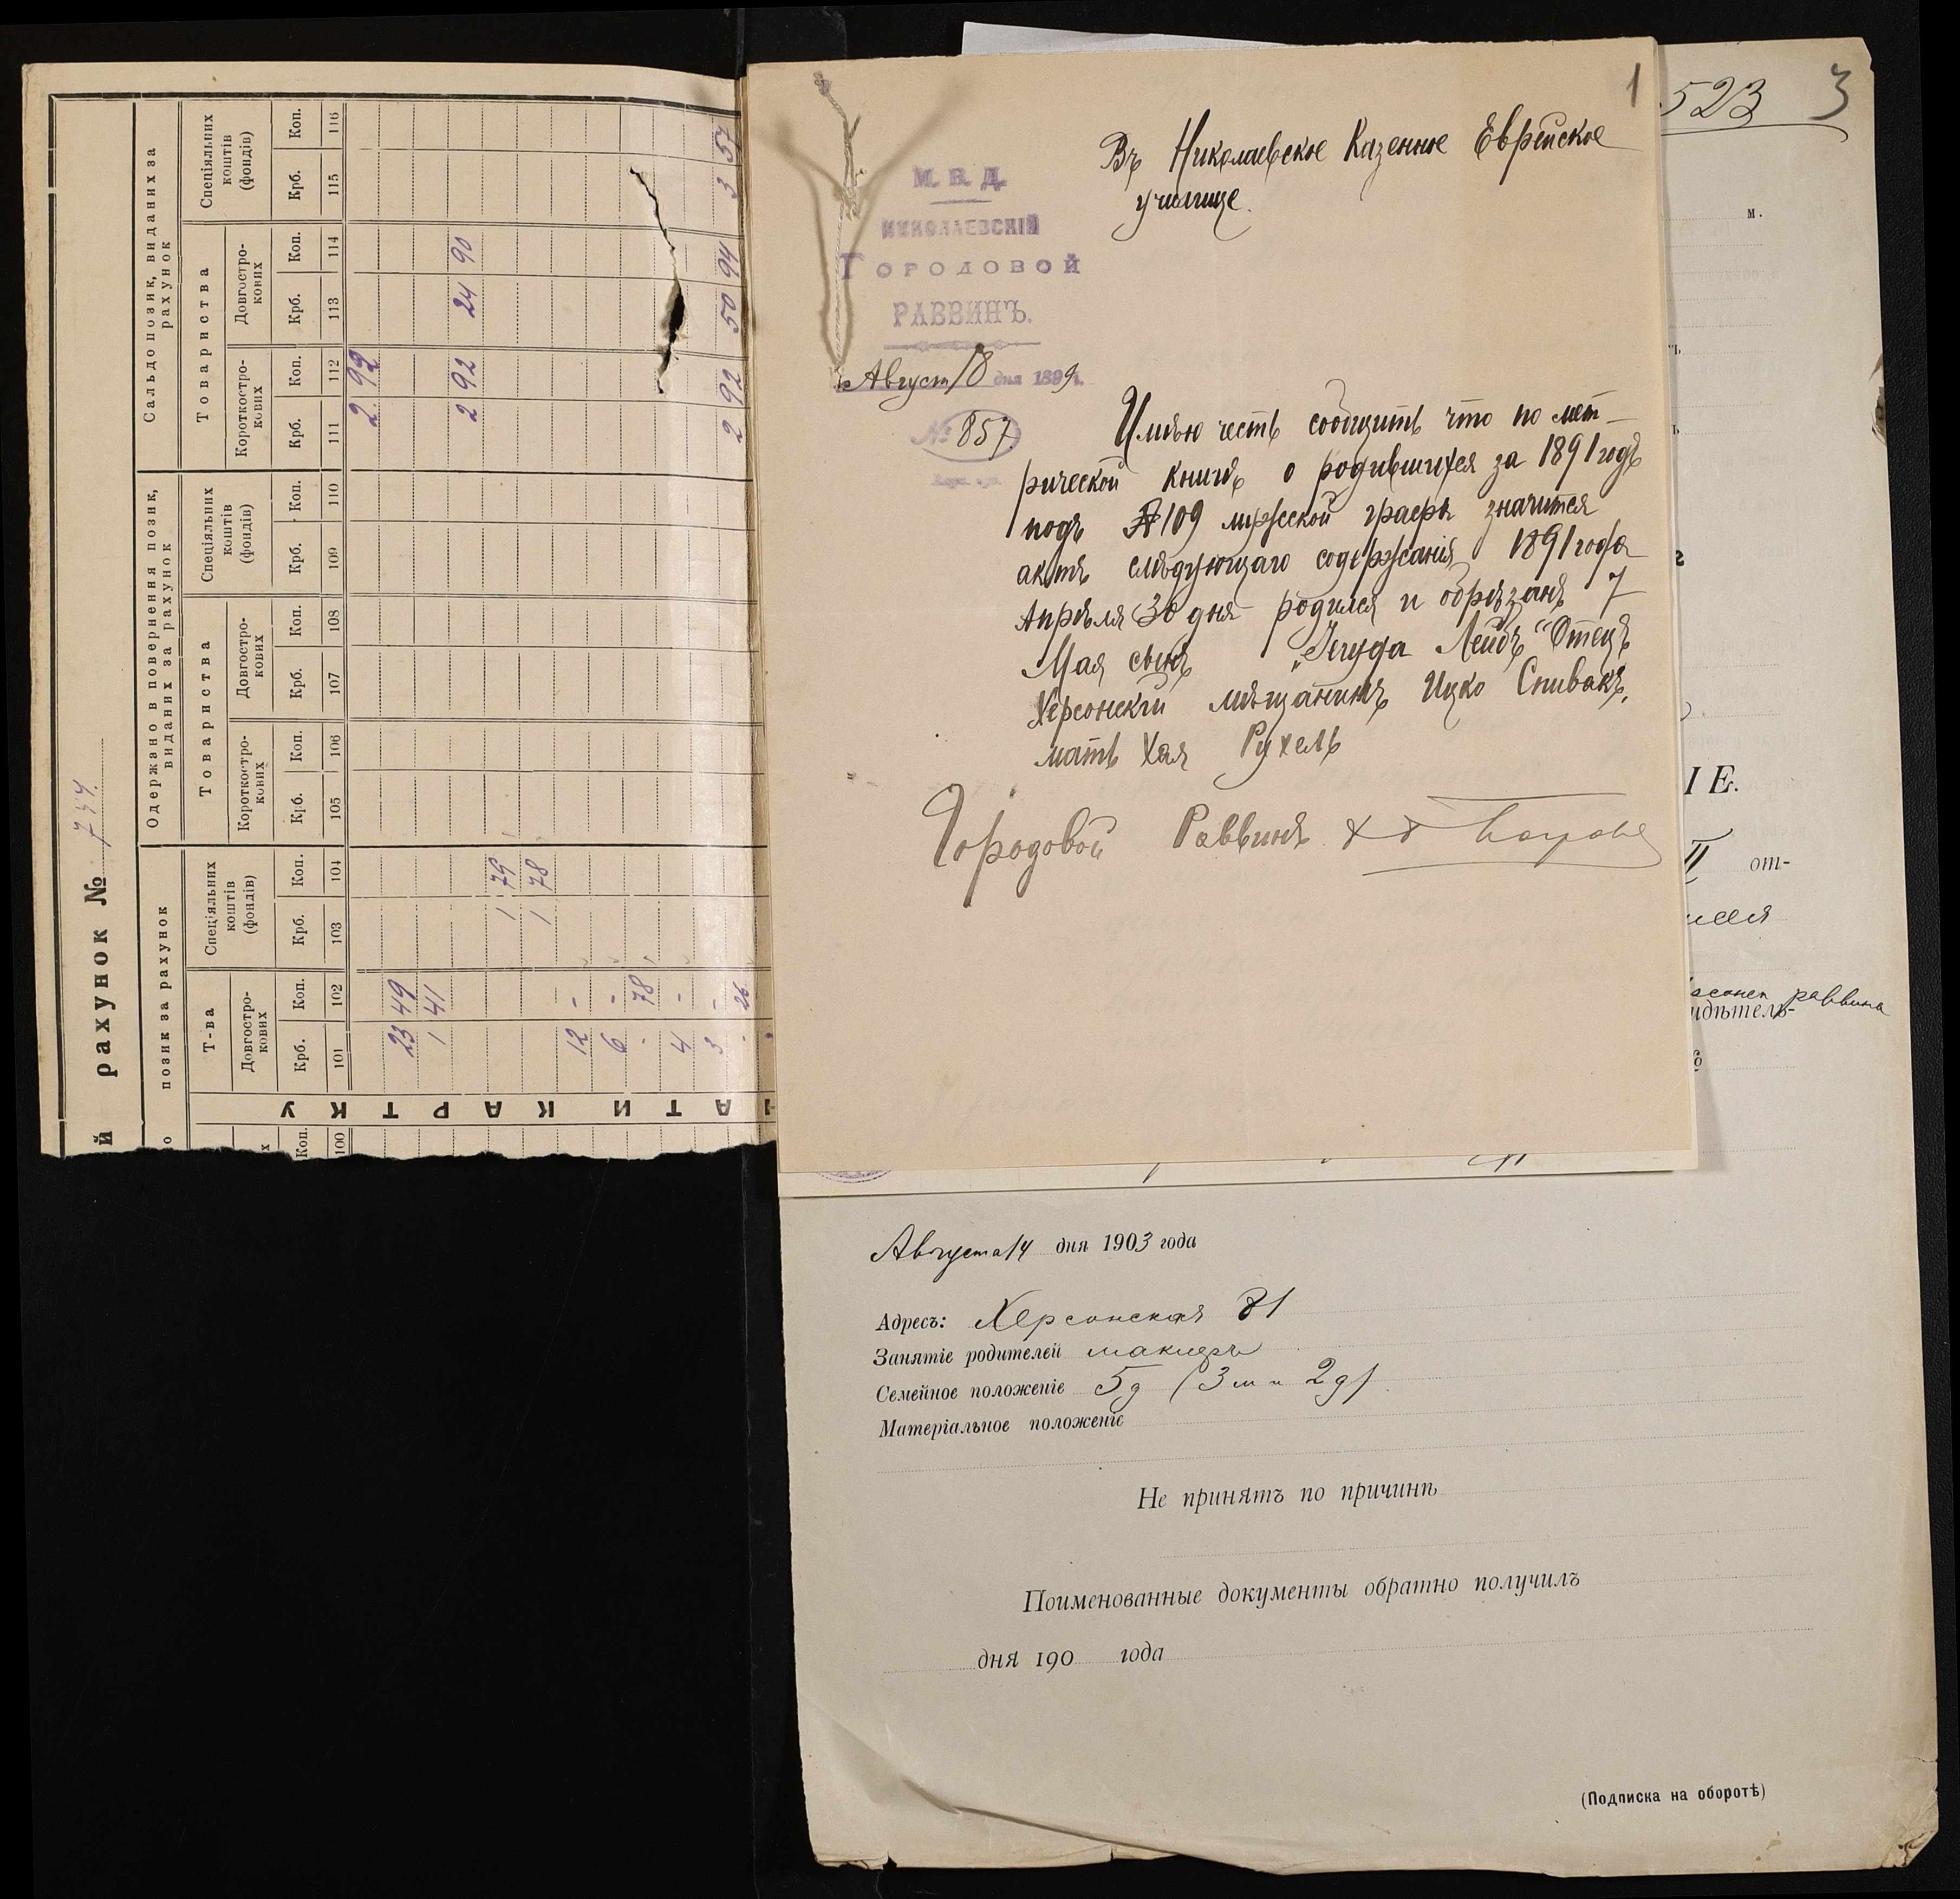 й рахунок №
о позик за рахунок
Одержано в повернення позик,
виданих за рахунок
Сальдо позик, виданих за
рахунок
Т-ва
Спеціяльних
коштів
(фондів)
Товариства
Спеціяльних
коштів
(фондів)
Товариства
Спеціяльних
коштів
(фондів)
х
Довгостро-
кових
Короткостро-
кових
Довгостро-
кових
Короткостро-
кових
Довгостро-
кових
Коп. Крб. Коп. Крб. Коп. Крб. Коп. Крб. Коп. Крб. Коп. Крб. Коп. Крб. Коп. Крб. Коп.
100 101 102 103 104 105 106 107 108 109 110 111 112 113 114 115 116
2 92
23 49
1 41
2 92 24 90
1 79
1 78
12 -
6 -
- 78
4 -
3 -
- 26 2 92 50 94 3 57
АТИ КАРТКУ
1
М. В. Д.
НИКОЛАЕВСКІЙ
ГОРОДОВОЙ
РАВВИНЪ.
Август 18 дня 1899 г.
№ 857
Въ Николаевское Казенное Еврейское
училище.
Имѣю честь сообщить что по мет-
рической книгѣ о родившихся за 1891 годъ
подъ № 109 мужской графы значится
актъ слѣдующаго содержанія 1891 года
Апрѣля 30 дня родился и обрѣзанъ 7
Мая сынъ „Іегуда Лейбъ“ Отецъ
Херсонскій мѣщанинъ Ицко Спивакъ,
мать Хая Рухель
Городовой Раввинъ
523 3
м.
ІЕ.
II от-
раввина
идѣтель-
Августа 14 дня 1903 года
Адресъ: Херсонская 81
Занятіе родителей маклеръ
Семейное положеніе 5 д (3 м и 2 д)
Матеріальное положеніе
Не принятъ по причинѣ
Поименованные документы обратно получилъ
дня 190 года
(Подписка на оборотѣ)